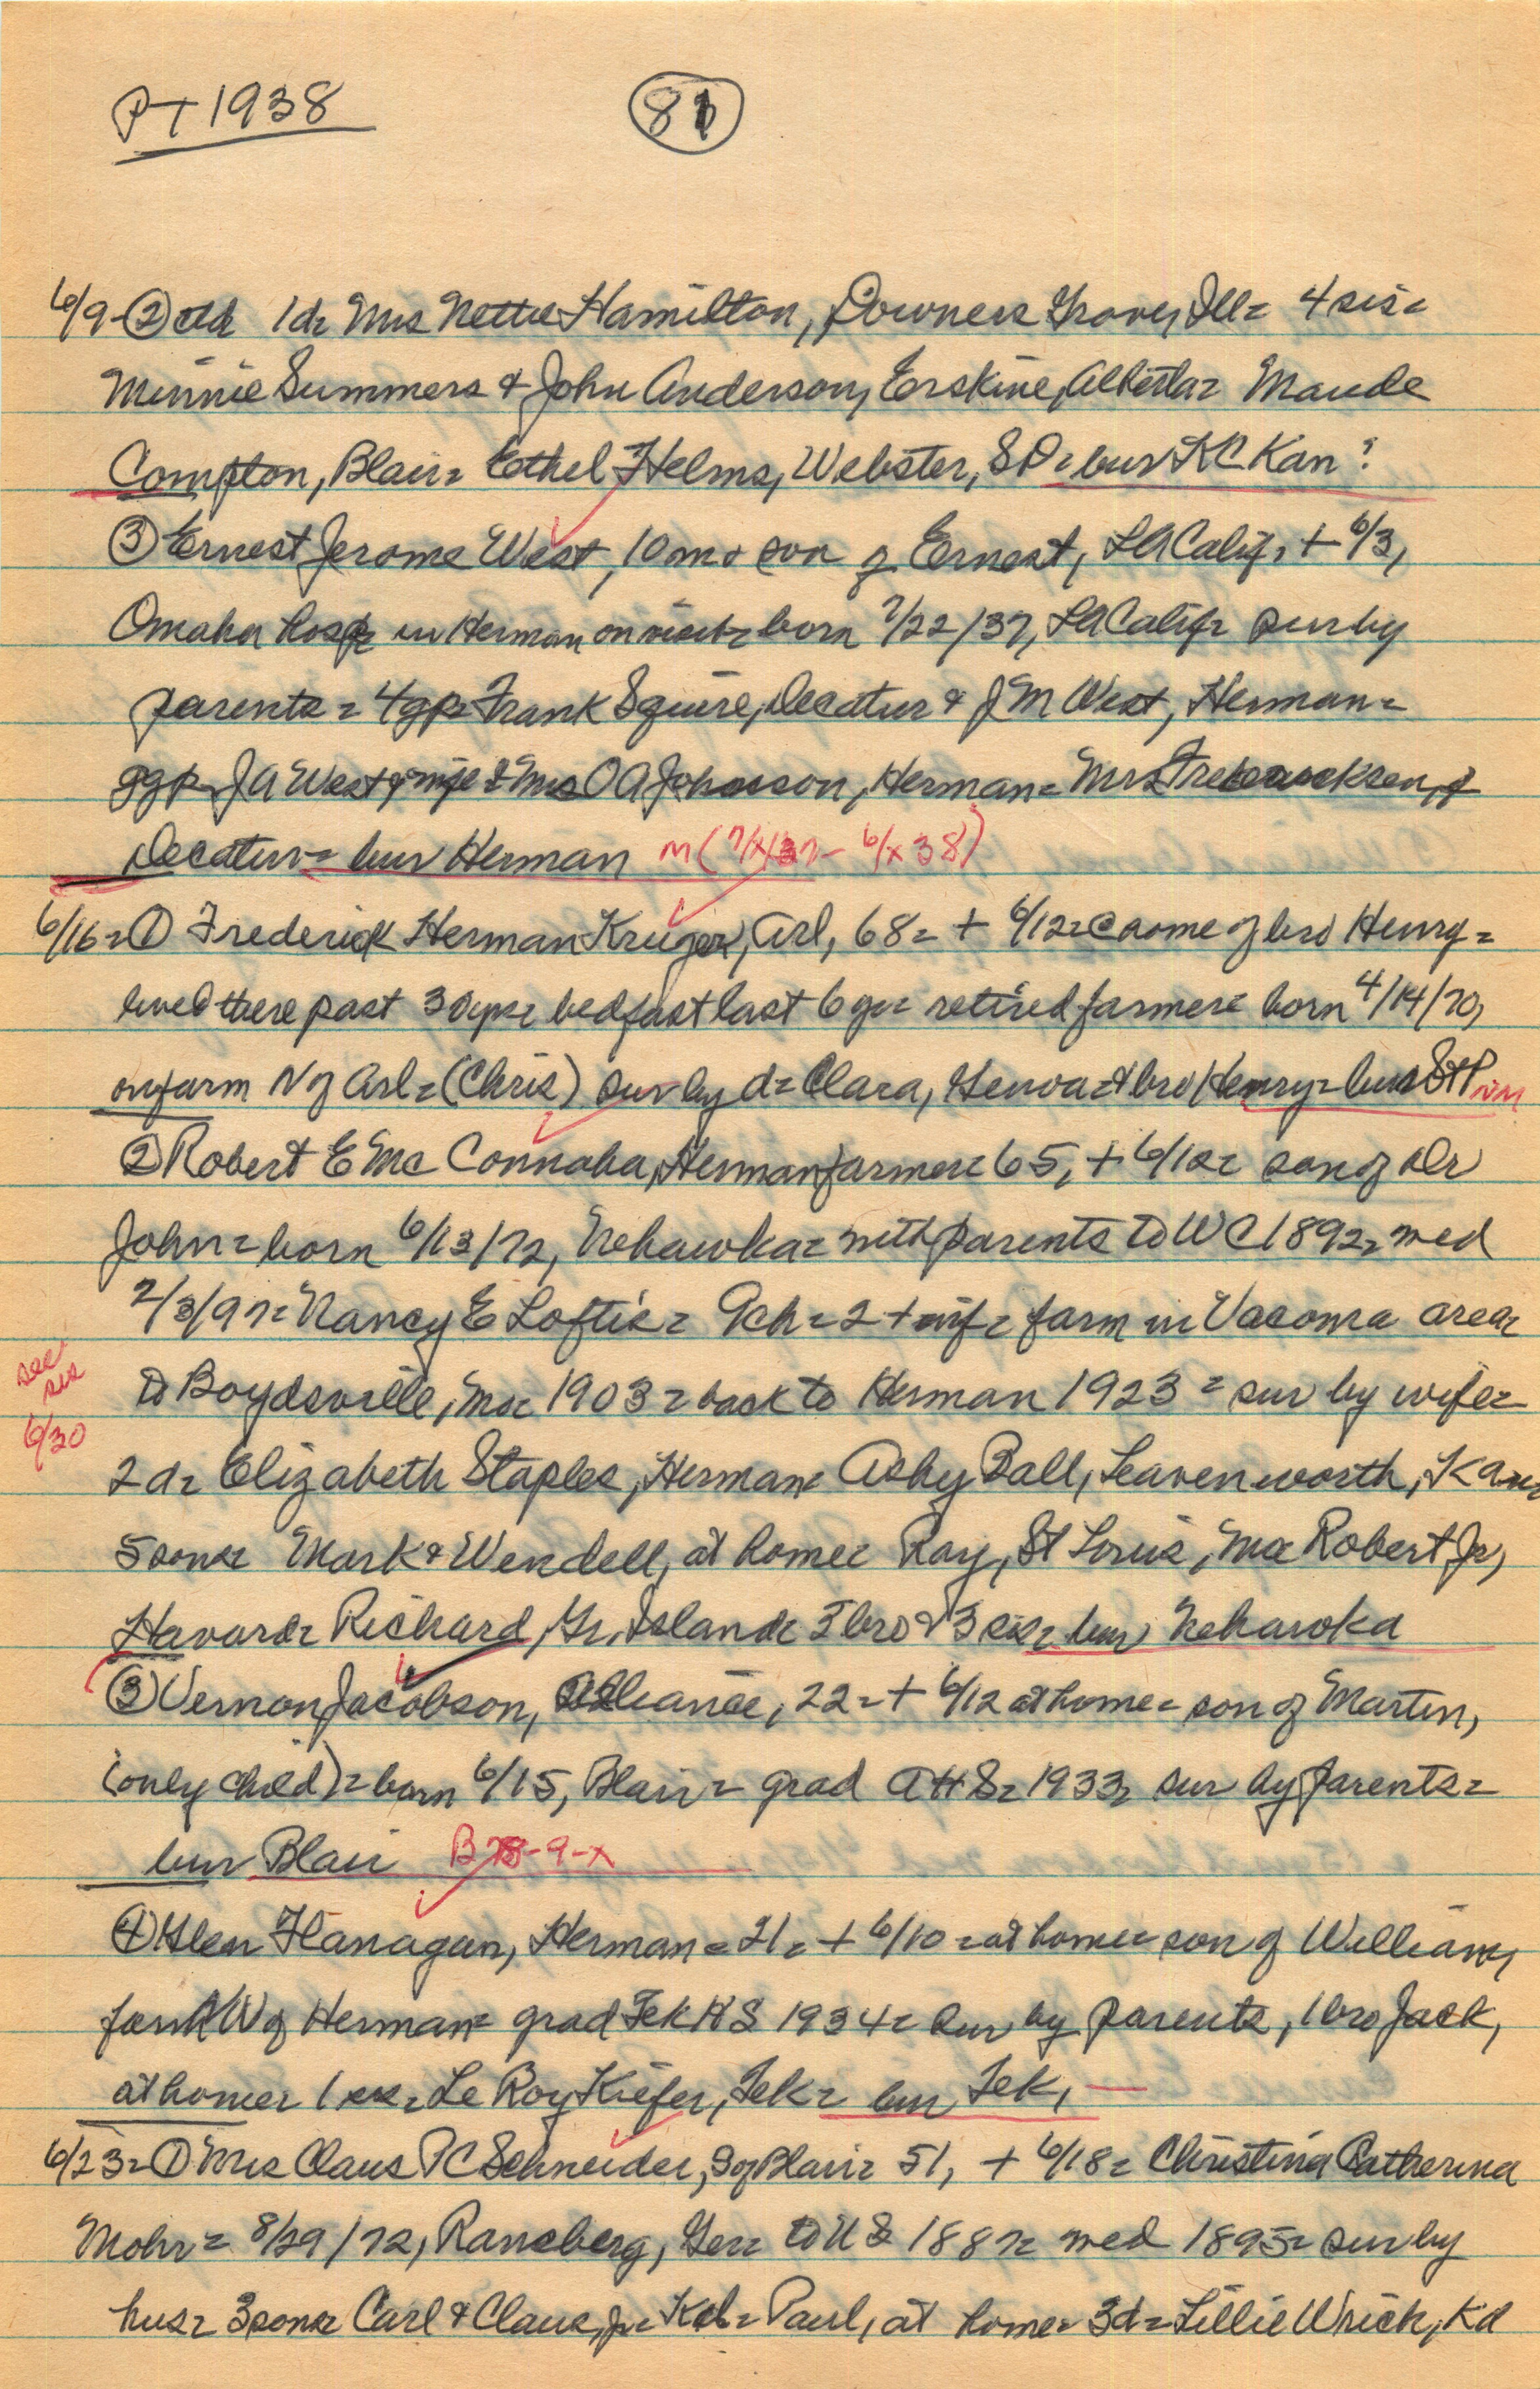 PT 1938 (81)
6/9-② ctd 1d= Mrs Nettie Hamilton, Downers Grove, Ill= 4 sis=
Minnie Summers & John Anderson, Erskine, Alberta= Maude
Compton, Blair= Ethel Helms, Webster, SD= bur KC Kan?
③ Ernest Jerome West, 10 mo son of Ernest, LA Calif, + 6/3,
Omaha hosp= in Herman on visit= born 7/22/37, LA Calif= sur by
parents= 4gp= Frank Squire, Decatur & J M West, Herman=
ggp J A West & wife & Mrs O A Johnson, Herman= Mrs
Decatur= bur Herman M (7/x/37- 6/x 38)
6/16= ① Frederick Herman Kruger, Arl, 68= + 6/12= @ home of bro Henry=
lived there past 30 yrs= bedfast last 6 yr= retired farmer= born 4/14/70,
on farm N of Arl= (Chris) sur by d= Clara, Genoa= & bro Henry= bur StP NM
② Robert E Mc Connaha, Herman farmer= 65, + 6/12= son of Dr
John= born 6/13/72, Nehawka= with parents to WC 1892= med
2/3/97= Nancy E Loftis= 9ch= 2 + inf= farm in Vacoma area=
see sis 6/30
to Boydsville, Mo= 1903= back to Herman 1923= sur by wife=
2d= Elizabeth Staples, Herman= Ashy Ball, Leavenworth, Kan=
5 sons= Mark & Wendell, at home= Ray, St Louis, Mo= Robert Jr,
Havard= Richard, Gr. Island= 3 bro & 3 sis= bur Nehawka
③ Vernon Jacobson, Alliance, 22= + 6/12 at home= son of Martin,
(only child)= born 6/15, Blair= grad AHS= 1933= sur by parents=
bur Blair B -9-x
④ Glen Flanagan, Herman= 21= + 6/10= at home= son of William,
farm NW of Herman= grad Tek HS 1934= sur by parents, 1 bro Jack,
at home= 1 sis= Le Roy Kiefer, Tek= bur Tek,
6/23= ① Mrs Claus P C Schneider, S of Blair= 51, + 6/18= Christina Catherina
Mohr= 8/29/72, Ranzberg, Ger= to US 1887= med 1895= sur by
hus= 3 sons= Carl & Claus, Jr= Kd= Paul, at home= 3d= Lillie Wrich, Kd